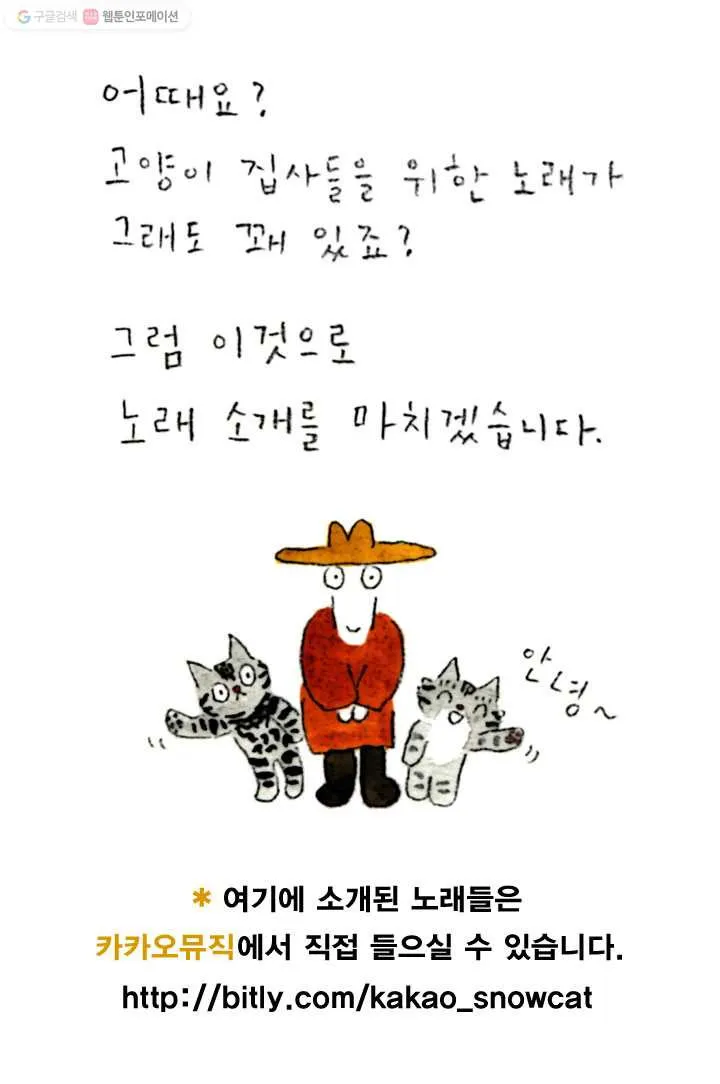 구글검색 웹툰인포메이션
어때요?
고양이 집사들을 위한 노래가
그래도 꽤 있죠?
그럼 이것으로
노래 소개를 마치겠습니다.
안녕~
* 여기에 소개된 노래들은
카카오뮤직에서 직접 들으실 수 있습니다.
http://bitly.com/kakao_snowcat